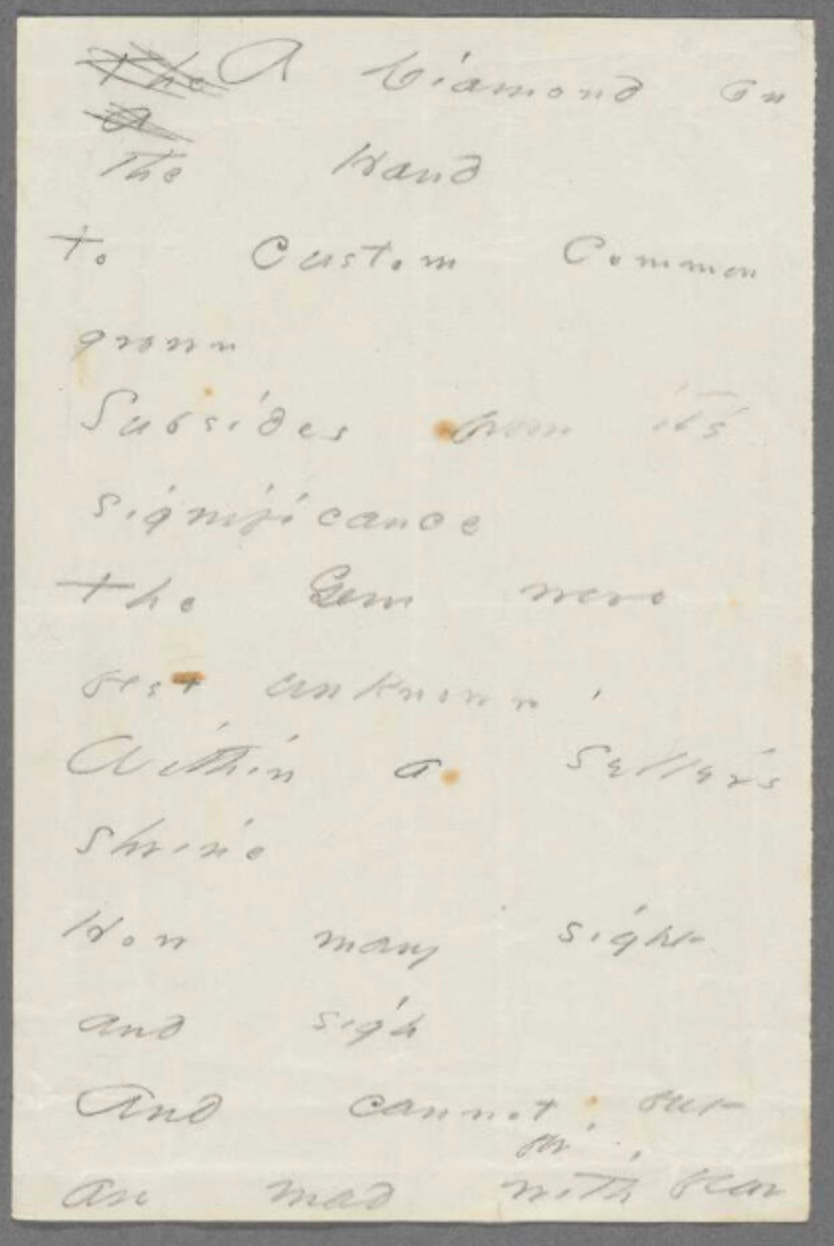 The A Diamond on
a
the Hand
to Custom Common
grown
Subsides from it's
significance
the Gem were
best unknown.
Within a Seller's
shrine
How many sight
and sigh
And cannot, but
for
are mad with fear